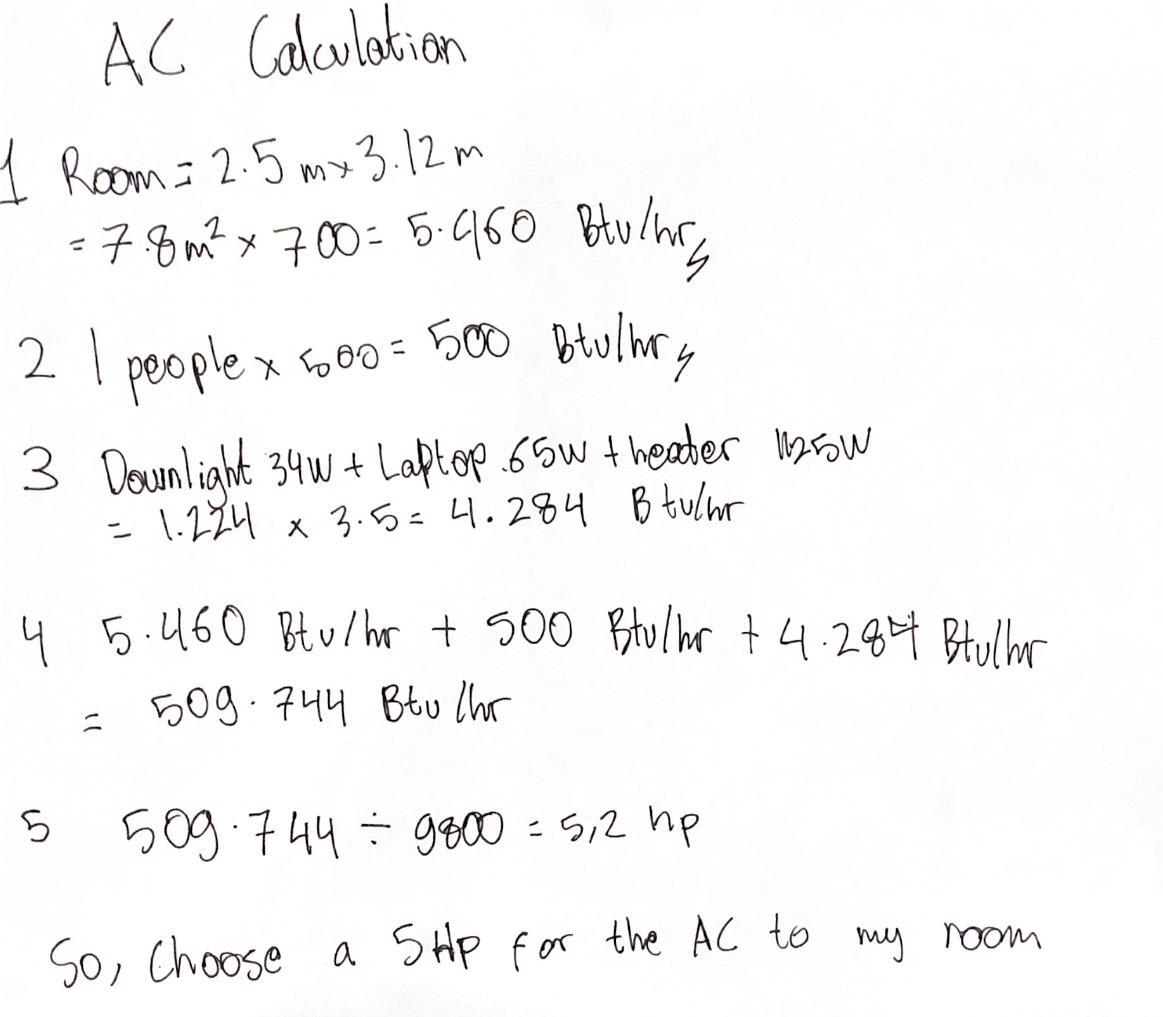 AC Calculation
1 Room = 2.5 m x 3.12 m
= 7.8 m² x 700 = 5.460 Btu/hr
2 1 people x 500 = 500 Btu/hr
3 Downlight 34W + Laptop 65W + heater 1125W
= 1.224 x 3.5 = 4.284 Btu/hr
4 5.460 Btu/hr + 500 Btu/hr + 4.284 Btu/hr
= 509.744 Btu/hr
5 509.744 ÷ 9800 = 5,2 hp
So, Choose a 5Hp for the AC to my room